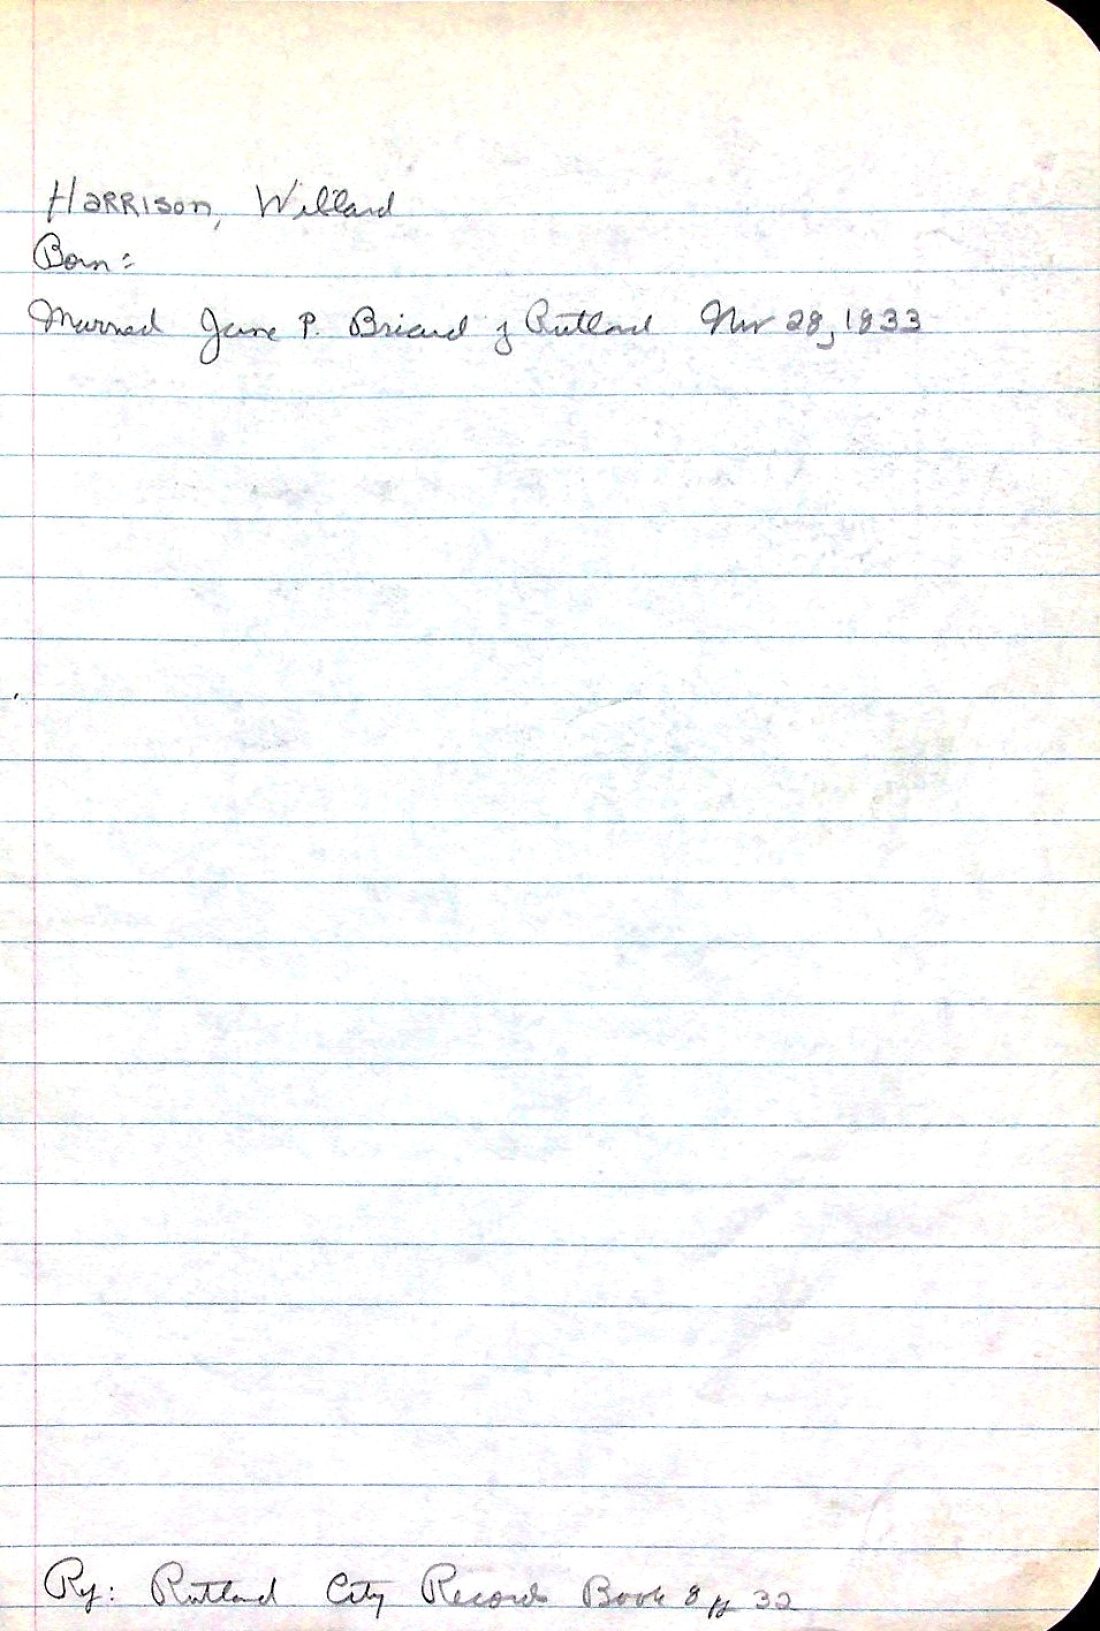 Harrison, Willard
Born:
Married Jane P. Briard of Rutland Nov 28, 1833
Ref: Rutland City Records Book 8 p 32